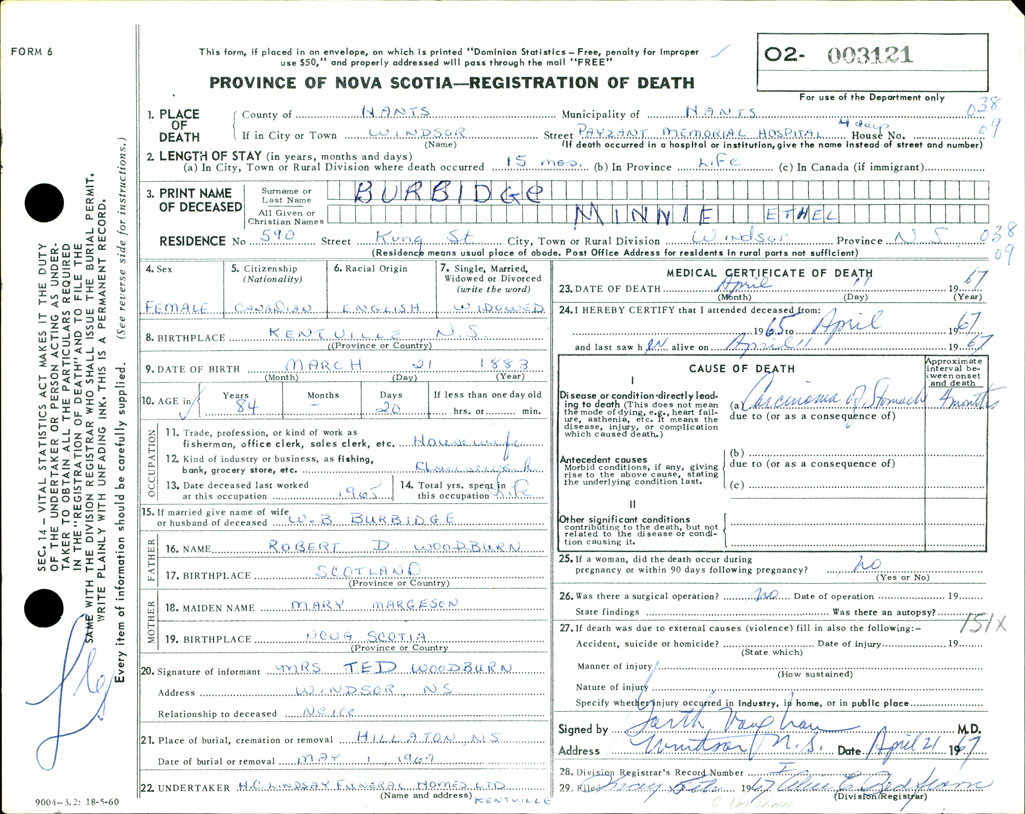 FORM 6
This form, if placed in an envelope, on which is printed "Dominion Statistics – Free, penalty for improper
use $50," and properly addressed will pass through the mail "FREE"
O2- 003121
PROVINCE OF NOVA SCOTIA—REGISTRATION OF DEATH
For use of the Department only
1. PLACE OF DEATH
County of HANTS Municipality of HANTS 038
If in City or Town WINDSOR Street PAYZANT MEMORIAL HOSPITAL 4 days House No. 09
(Name) (If death occurred in a hospital or institution, give the name instead of street and number)
2. LENGTH OF STAY (in years, months and days)
(a) In City, Town or Rural Division where death occurred 15 mos. (b) In Province Life (c) In Canada (if immigrant)
3. PRINT NAME OF DECEASED
Surname or Last Name BURBIDGE
All Given or Christian Names MINNIE ETHEL
RESIDENCE No 590 Street King St City, Town or Rural Division Windsor Province N S 038
(Residence means usual place of abode. Post Office Address for residents in rural parts not sufficient) 09
4. Sex
FEMALE
5. Citizenship (Nationality)
CANADIAN
6. Racial Origin
ENGLISH
7. Single, Married, Widowed or Divorced (write the word)
WIDOWED
8. BIRTHPLACE KENTVILLE N.S
(Province or Country)
9. DATE OF BIRTH MARCH 21 1883
(Month) (Day) (Year)
10. AGE in Years 84 Months – Days 20 If less than one day old hrs. or min.
OCCUPATION
11. Trade, profession, or kind of work as
fisherman, office clerk, sales clerk, etc. Housewife
12. Kind of industry or business, as fishing,
bank, grocery store, etc. Housework
13. Date deceased last worked
at this occupation 1965
14. Total yrs. spent in
this occupation Life
15. If married give name of wife
or husband of deceased W.B. BURBIDGE
FATHER
16. NAME ROBERT D WOODBURN
17. BIRTHPLACE SCOTLAND
(Province or Country)
MOTHER
18. MAIDEN NAME MARY MARGESON
19. BIRTHPLACE NOVA SCOTIA
(Province or Country)
20. Signature of informant MRS TED WOODBURN
Address WINDSOR, NS
Relationship to deceased NEICE
21. Place of burial, cremation or removal HILLATON, NS
Date of burial or removal MAY 1, 1967
22. UNDERTAKER H.C. LINDSAY FUNERAL HOMES LTD
(Name and address) KENTVILLE
MEDICAL CERTIFICATE OF DEATH
23. DATE OF DEATH April 11 1967
(Month) (Day) (Year)
24. I HEREBY CERTIFY that I attended deceased from:
1965 to April 1967
and last saw h er alive on April 11 1967
CAUSE OF DEATH
Approximate interval between onset and death
I
Disease or condition directly leading to death (This does not mean
the mode of dying, e.g., heart failure, asthenia, etc. It means the
disease, injury, or complication
which caused death.)
(a) Carcinoma of Stomach 4 months
due to (or as a consequence of)
Antecedent causes
Morbid conditions, if any, giving
rise to the above cause, stating
the underlying condition last.
(b)
due to (or as a consequence of)
(c)
II
Other significant conditions
contributing to the death, but not
related to the disease or condition causing it.
25. If a woman, did the death occur during
pregnancy or within 90 days following pregnancy? no
(Yes or No)
26. Was there a surgical operation? no Date of operation 19
State findings Was there an autopsy?
27. If death was due to external causes (violence) fill in also the following:– 151X
Accident, suicide or homicide? Date of injury 19
(State which)
Manner of injury
(How sustained)
Nature of injury
Specify whether injury occurred in industry, in home, or in public place
Signed by Garth Vaughan M.D.
Address Windsor N.S. Date April 21 1967
28. Division Registrar's Record Number
29. Filed 1967
(Division Registrar)
G Vaughan
SEC. 14 – VITAL STATISTICS ACT MAKES IT THE DUTY
OF THE UNDERTAKER OR PERSON ACTING AS UNDER-
TAKER TO OBTAIN ALL THE PARTICULARS REQUIRED
IN THE "REGISTRATION OF DEATH" AND TO FILE THE
SAME WITH THE DIVISION REGISTRAR WHO SHALL ISSUE THE BURIAL PERMIT.
WRITE PLAINLY WITH UNFADING INK. THIS IS A PERMANENT RECORD.
Every item of information should be carefully supplied. (See reverse side for instructions.)
9004–3.2: 18-5-60